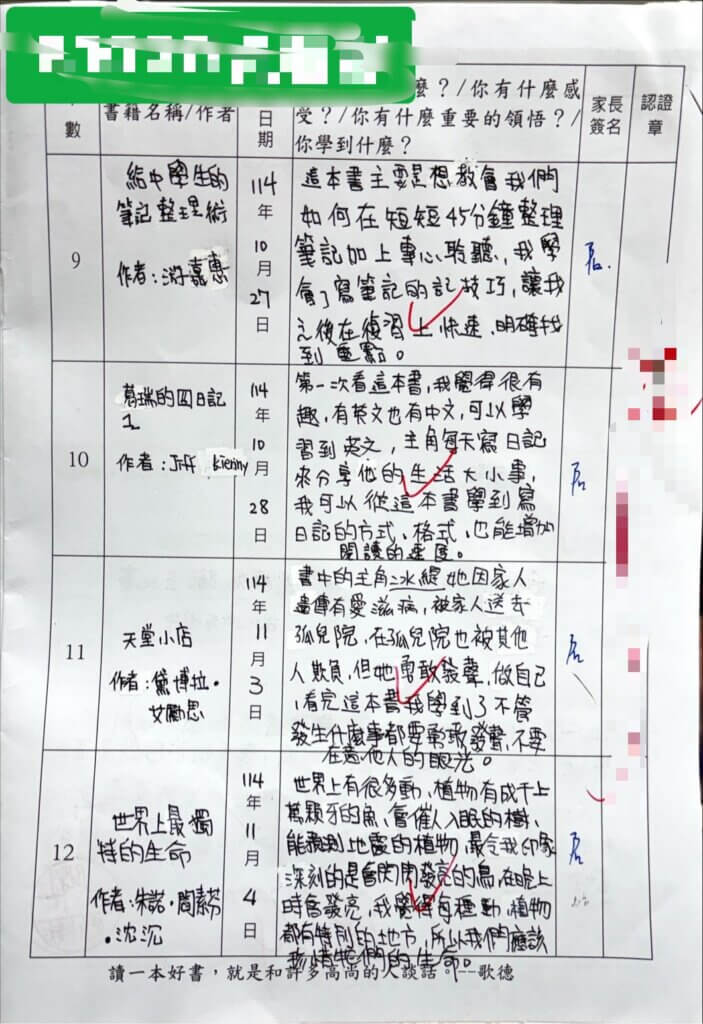 數
書籍名稱/作者
日期
麼？/你有什麼感
受？/你有什麼重要的領悟？/
你學到什麼？
家長
簽名
認證
章
9
給中學生的
筆記整理術
作者：游嘉惠
114
年
10
月
27
日
這本書主要是想教會我們
如何在短短45分鐘整理
筆記加上專心聆聽，我學
會了寫筆記的記技巧，讓我
之後在復習上快速、明確找
到重點。
10
葛瑞的囧日記
1
作者：Jeff kieniny
114
年
10
月
28
日
第一次看這本書，我覺得很有
趣，有英文也有中文，可以學
習到英文，主角每天寫日記
來分享他的生活大小事，
我可以從這本書學到寫
日記的方式、格式，也能增加
閱讀的速度。
11
天堂小店
作者：黛博拉·
艾勵思
114
年
11
月
3
日
書中的主角冰緹她因家人
遺傳有愛滋病，被家人送去
孤兒院，在孤兒院也被其他
人欺負，但她勇敢發聲，做自己
，看完這本書我學到了不管
發生什麼事都要勇敢發聲，不要
在意他人的眼光。
12
世界上最獨
特的生命
作者：朱諾·閻素芬
·沈沉
114
年
11
月
4
日
世界上有很多動、植物有成千上
萬顆牙的魚、會催人入眠的樹、
能觀測地震的植物，最令我印象
深刻的是會閃閃發亮的鳥，在晚上
時會發亮，我覺得每種動、植物
都有特別的地方，所以我們應該
珍惜牠們的生命。
讀一本好書，就是和許多高尚的人談話。---歌德